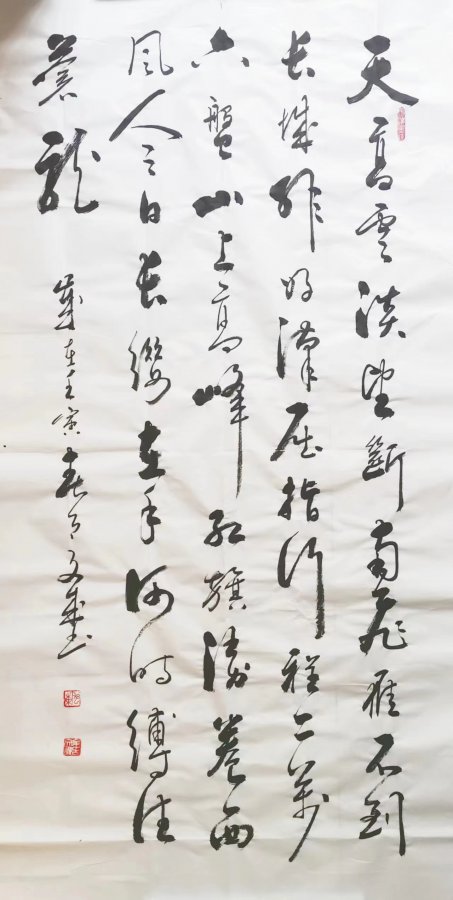 天高雲淡望斷南飛雁不到
長城非好漢屈指行程二萬
六盤山上高峰紅旗漫卷西
風今日長纓在手何時縛住
蒼龍
歲在壬寅春月文書